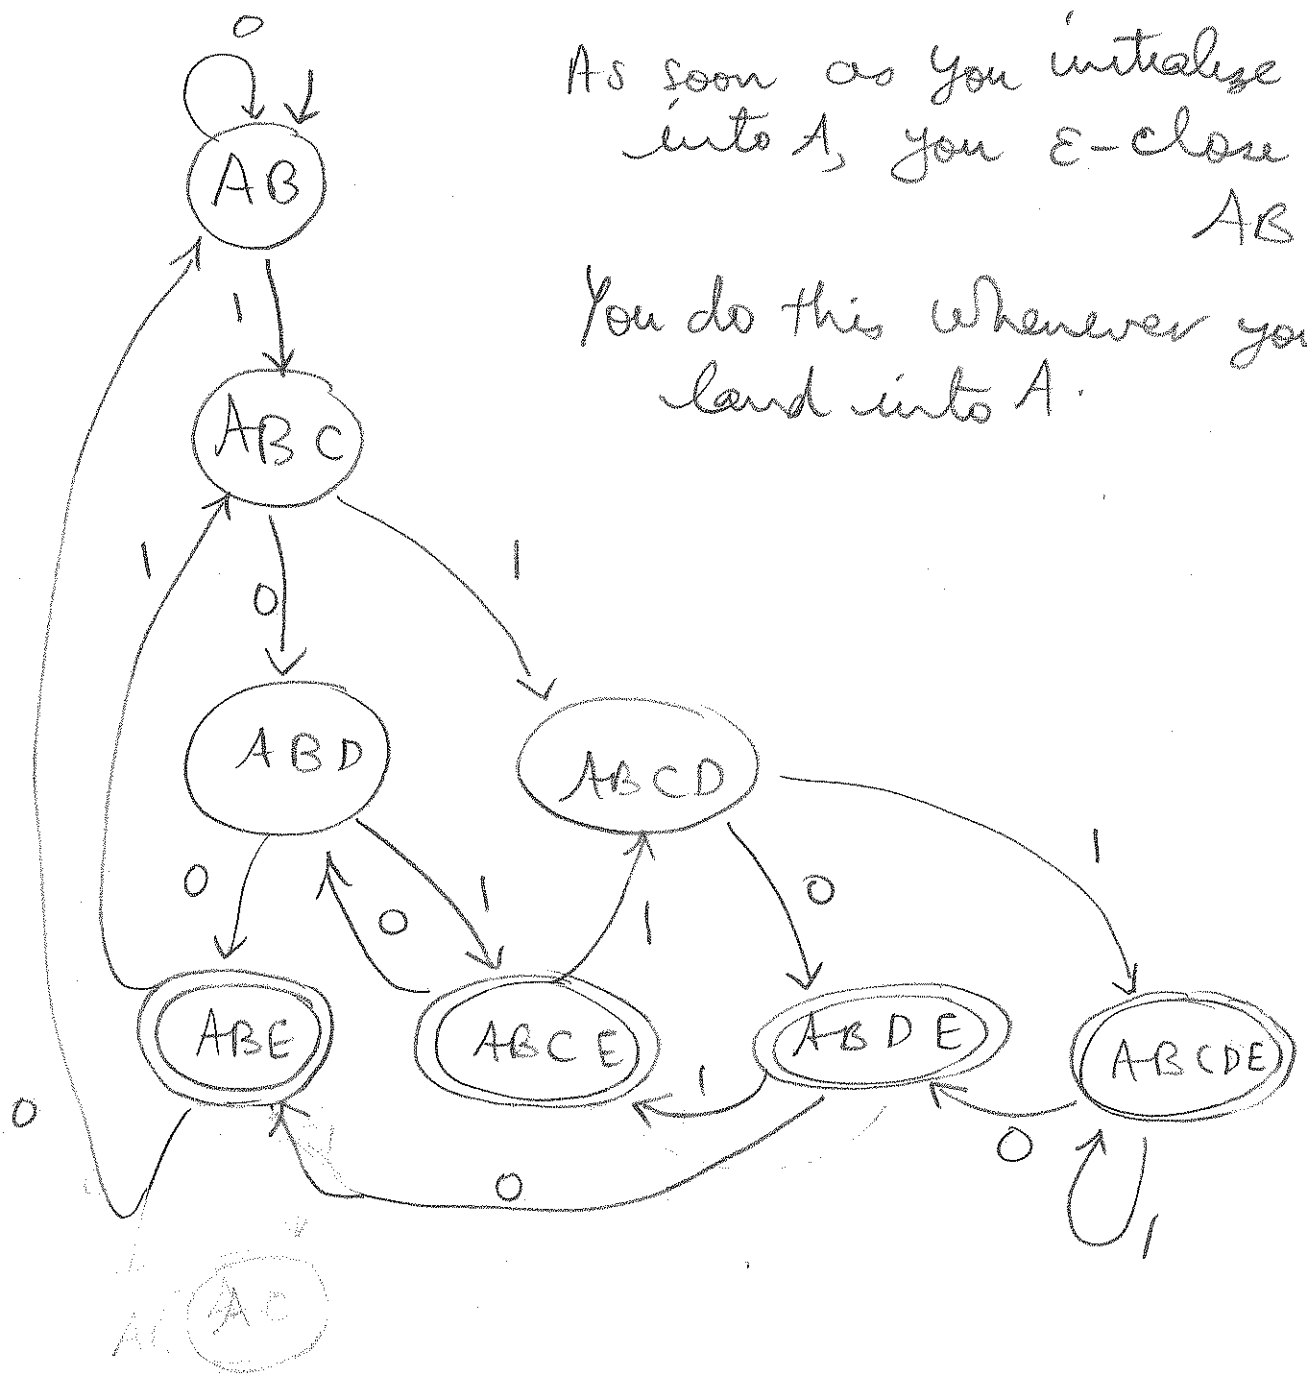 0
As soon as you initialize
into A, you ε-close
AB
AB
1
You do this whenever you
land into A.
ABC
1
0
1
ABD
ABCD
0
1
0
1
0
1
ABE
ABCE
ABDE
ABCDE
0
1
0
0
1
AC